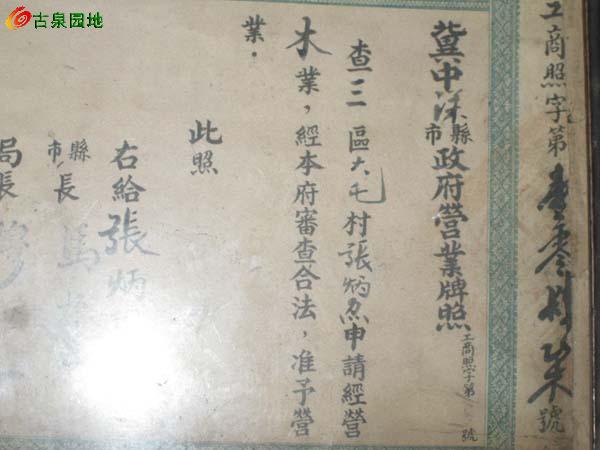 古泉园地
工商照字第壹零 號
冀中深縣市政府營業牌照
工商照字第 號
查三區大屯村張炳 申請經營
木業，經本府審查合法，准予營
業．
此照
右給張炳
縣市長馬
局長